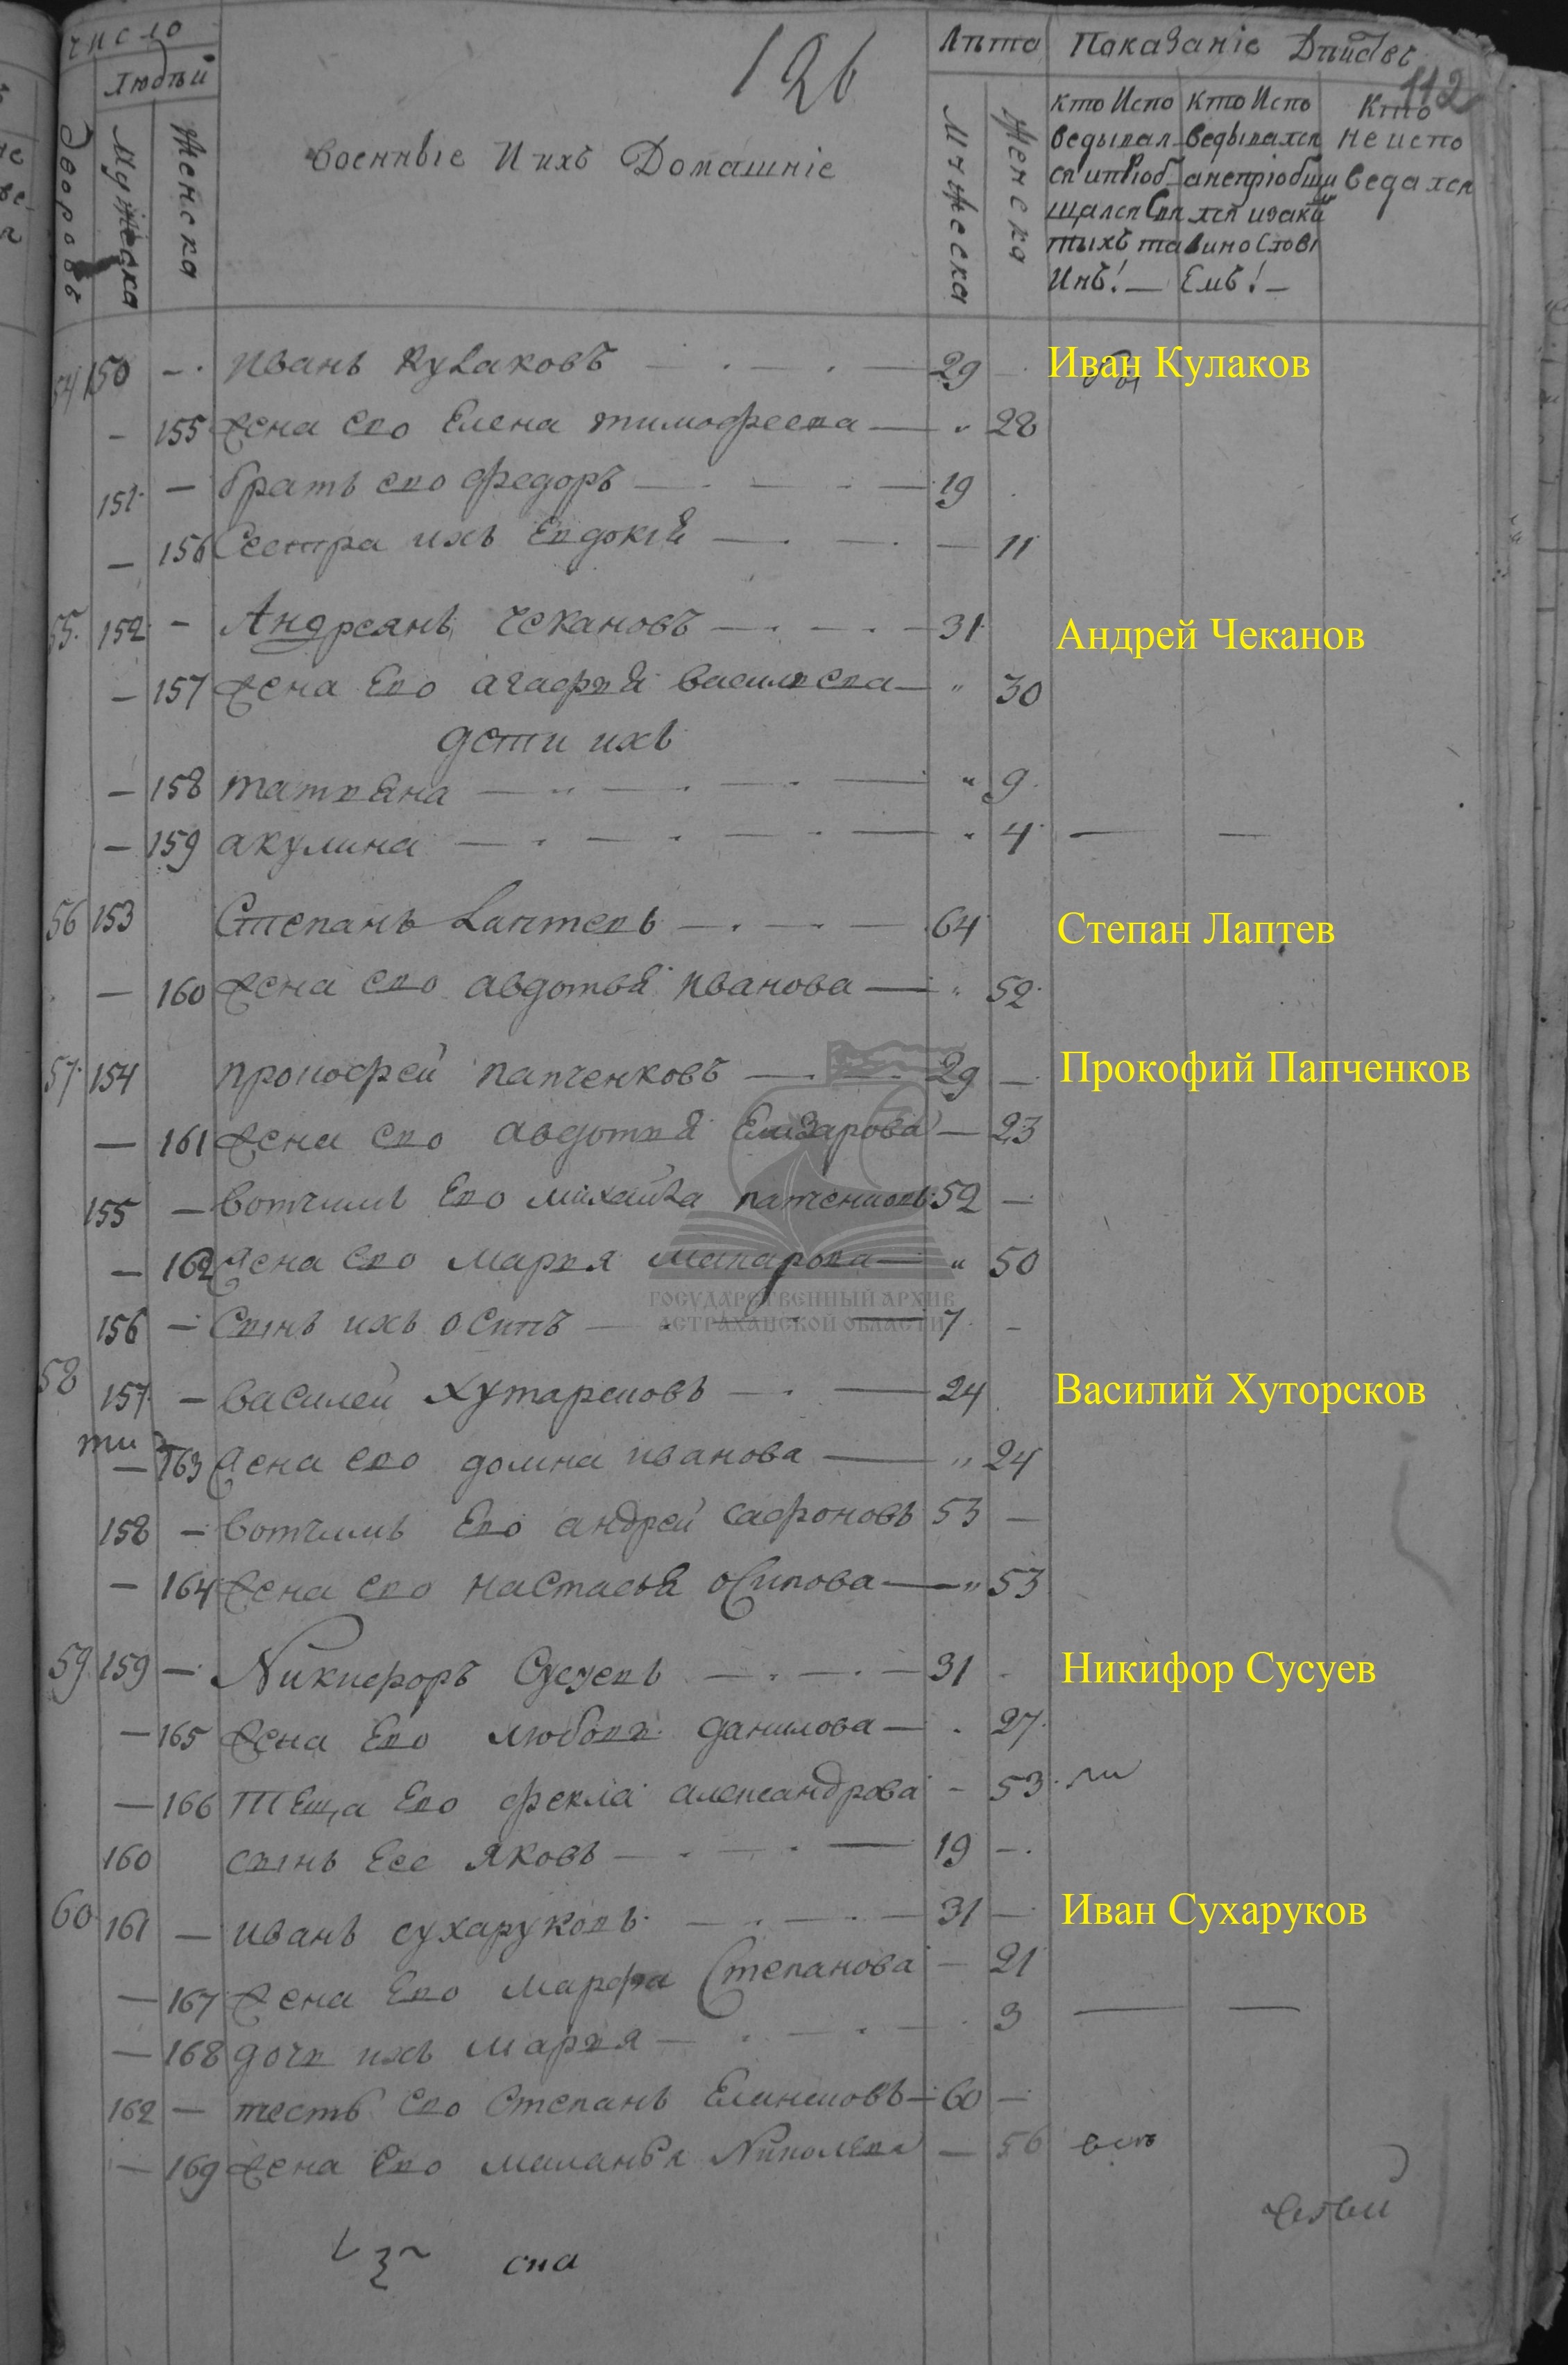 число
людьй
Дворовъ
Мужеска
Женска
126
Военные И ихъ Домашніе
Лѣта
Мужеска
Женска
Показаніе Дѣйствъ
112
кто Испо
ведывал
ся и прїоб
щался Свя
тыхъ та
инъ!
кто Испо
ведывался
а непрїобщи
лся и зака
вино слові
емъ!
Кто
не испо
ведался
54 150 — Иванъ Кулаковъ — 29 — Иван Кулаков
— 155 Жена его Елена тимофеева — " 28
151 — братъ его федоръ — 19
— 156 Сестра ихъ Евдокія — 11
55 152 — Андреянъ Чекановъ — 31 Андрей Чеканов
— 157 Жена Его агафья васильева — " 30
дети ихъ
— 158 татьяна — " 9
— 159 акулина — " 4 — —
56 153 Степанъ Лаптевъ — 64 Степан Лаптев
— 160 Жена его авдотья иванова — " 52
57 154 прокофей папченковъ — 29 — Прокофий Папченков
— 161 жена его авдотья Елизарова — 23
155 — вотчимъ Его михайла 52 —
— 162 Жена его марья макарова — " 50
ГОСУДАРСТВЕННЫЙ АРХИВ
АСТРАХАНСКОЙ ОБЛАСТИ
156 — Сынъ ихъ осипъ — 7 —
58 157 — василей хутарсковъ — 24 Василий Хуторсков
— 163 Жена его домна иванова — " 24
158 — вотчимъ Его андрей сафоновъ 53 —
— 164 Жена его настасья осипова — " 53
59 159 — Никифоръ Сусуевъ — 31 Никифор Сусуев
— 165 Жена Его любовь данилова — 27
— 166 теща Его фекла александрова — 53
160 сынъ Еее яковъ — 19 —
60 161 — иванъ сухаруковъ — 31 — Иван Сухаруков
— 167 Жена Его марфа Степанова — 21
— 168 дочь ихъ марья — 3 — —
162 — тесть его степанъ — 60 —
— 169 Жена Его маланья — 56